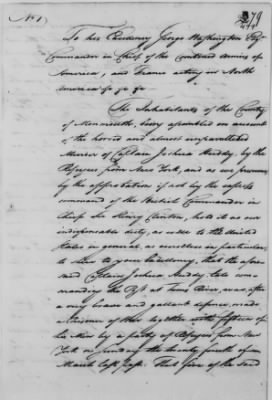 No 1
279
To his Excellency George Washington Esqr
Commander in Chief of the combined armies of
America, and France acting in North
America &c &c &c
The Inhabitants of the County
of Monmouth, being assembled on account
of the horrid and almost unparalleled
Murder of Captain Joshua Huddy, by the
Refugees from New York, and as we presume
by the approbation if not by the express
command of the British Commander in
Chief Sir Henry Clinton, hold it as our
indispensable duty, as well to the United
States in general, as ourselves in particular,
to shew to your Excellency, that the afore
said Captain Joshua Huddy, late com
manding the Post at Toms River, was, after
a very brave and gallant defence, made
a Prisoner of War together with fifteen of
his Men by a party of Refugees from New
York on sunday the twenty fourth of
March last past. That five of the said